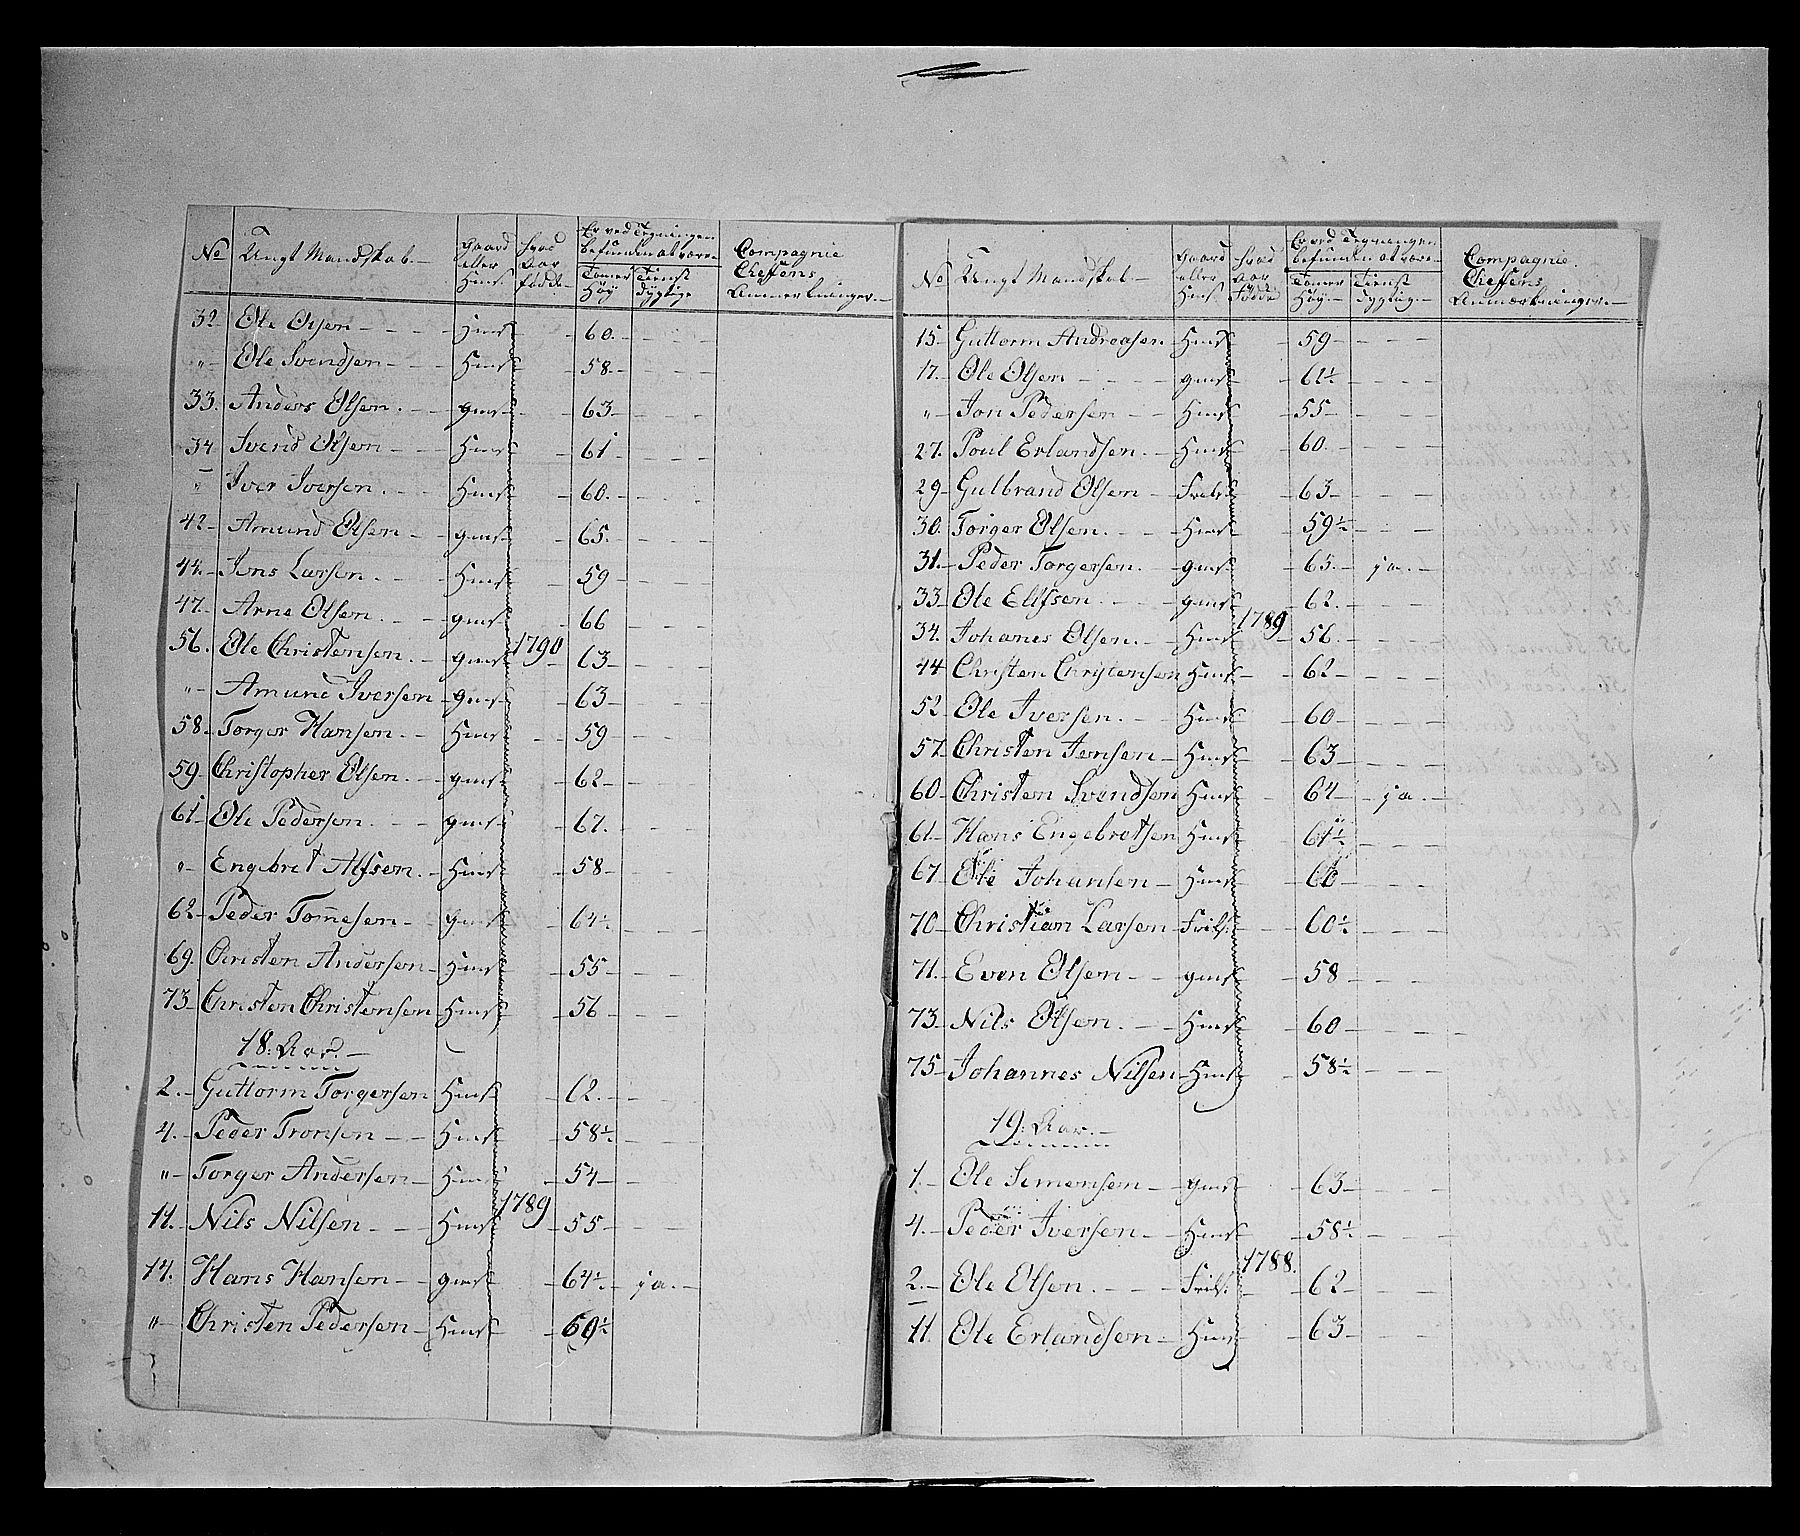 No Ungt Mandskab. Gaard eller Huus. hvad Aar fødde Er ved Tegningen befunden at være Tomer Høy Tienst dygtige Compagnie Cheffens Anmerkninger.
32 Ole Olsen Huus 60.
"- Ole Svendsen Huus 58.
33. Anders Olsen. gaus 63
34 Svend Olsen Huus 61
" Iver Iversen. Huus 60.
42 Amund Olsen gaus 65.
44. Jens Larsen. Huus 59
47. Arne Olsen. gaus 66
56. Ole Christensen. gaus 1790 63
"- Amund Iversen gaus 63
58 Torger Hansen. Huus 59
59. Christopher Olsen. gaus 62
61 Ole Pedersen. gaus 67.
"- Engebret Alfsen. Huus 58
62 Peder Tom̄esen gaus 64½
69. Christen Andersen Huus 55
73 Christen Christensen Huus 56
18: Aar.
2. Guttorm Torgersen Huus 62.
4. Peder Tronsen Huus 58½
"- Torger Andersen Huus 54
11. Nils Nilsen Huus 1789 55
14. Hans Hansen gaus 64½ ja.
"- Christen Pedersen Huus 60½
No Ungt Mandskab Gaard eller Huus hvad Aar Fødde Er ved Tegningen befunden at være Tomer Høy. Tienst dygtig. Compagnie Cheffens Anmærkninger.
15. Guttorm Andreasen Huus 59
17. Ole Olsen gaus 61½
"- Jon Pedersen Huus 55
27. Poul Erlandsen Huus 60.
29 Gulbrand Olsen Frels 63
30. Torger Olsen. Huus 59½
31. Peder Torgersen. gaus 65. ja.
33. Ole Ellfsen gaus 62.
34. Johanes Olsen. Huus 1789 56.
44 Christen Christensen Huus 62
52. Ole Iversen. Huus 60
57 Christen Jensen Huus 63
60 Christen Svendsen Huus 64 ja.
61 Hans Engebretsen Huus 61½
67 Ole Johansen Huus 60
70 Christian Larsen Frils: 60½
71. Even Olsen gaus 58
73. Nils Olsen. Huus 60
75 Johannes Nilsen Huus 58½
19: Aar.
1. Ole Simensen gaus 63
4. Peder Iversen Huus 58½
2. Ole Olsen. Frils: 1788. 62
11. Ole Erlandsen Huus 63